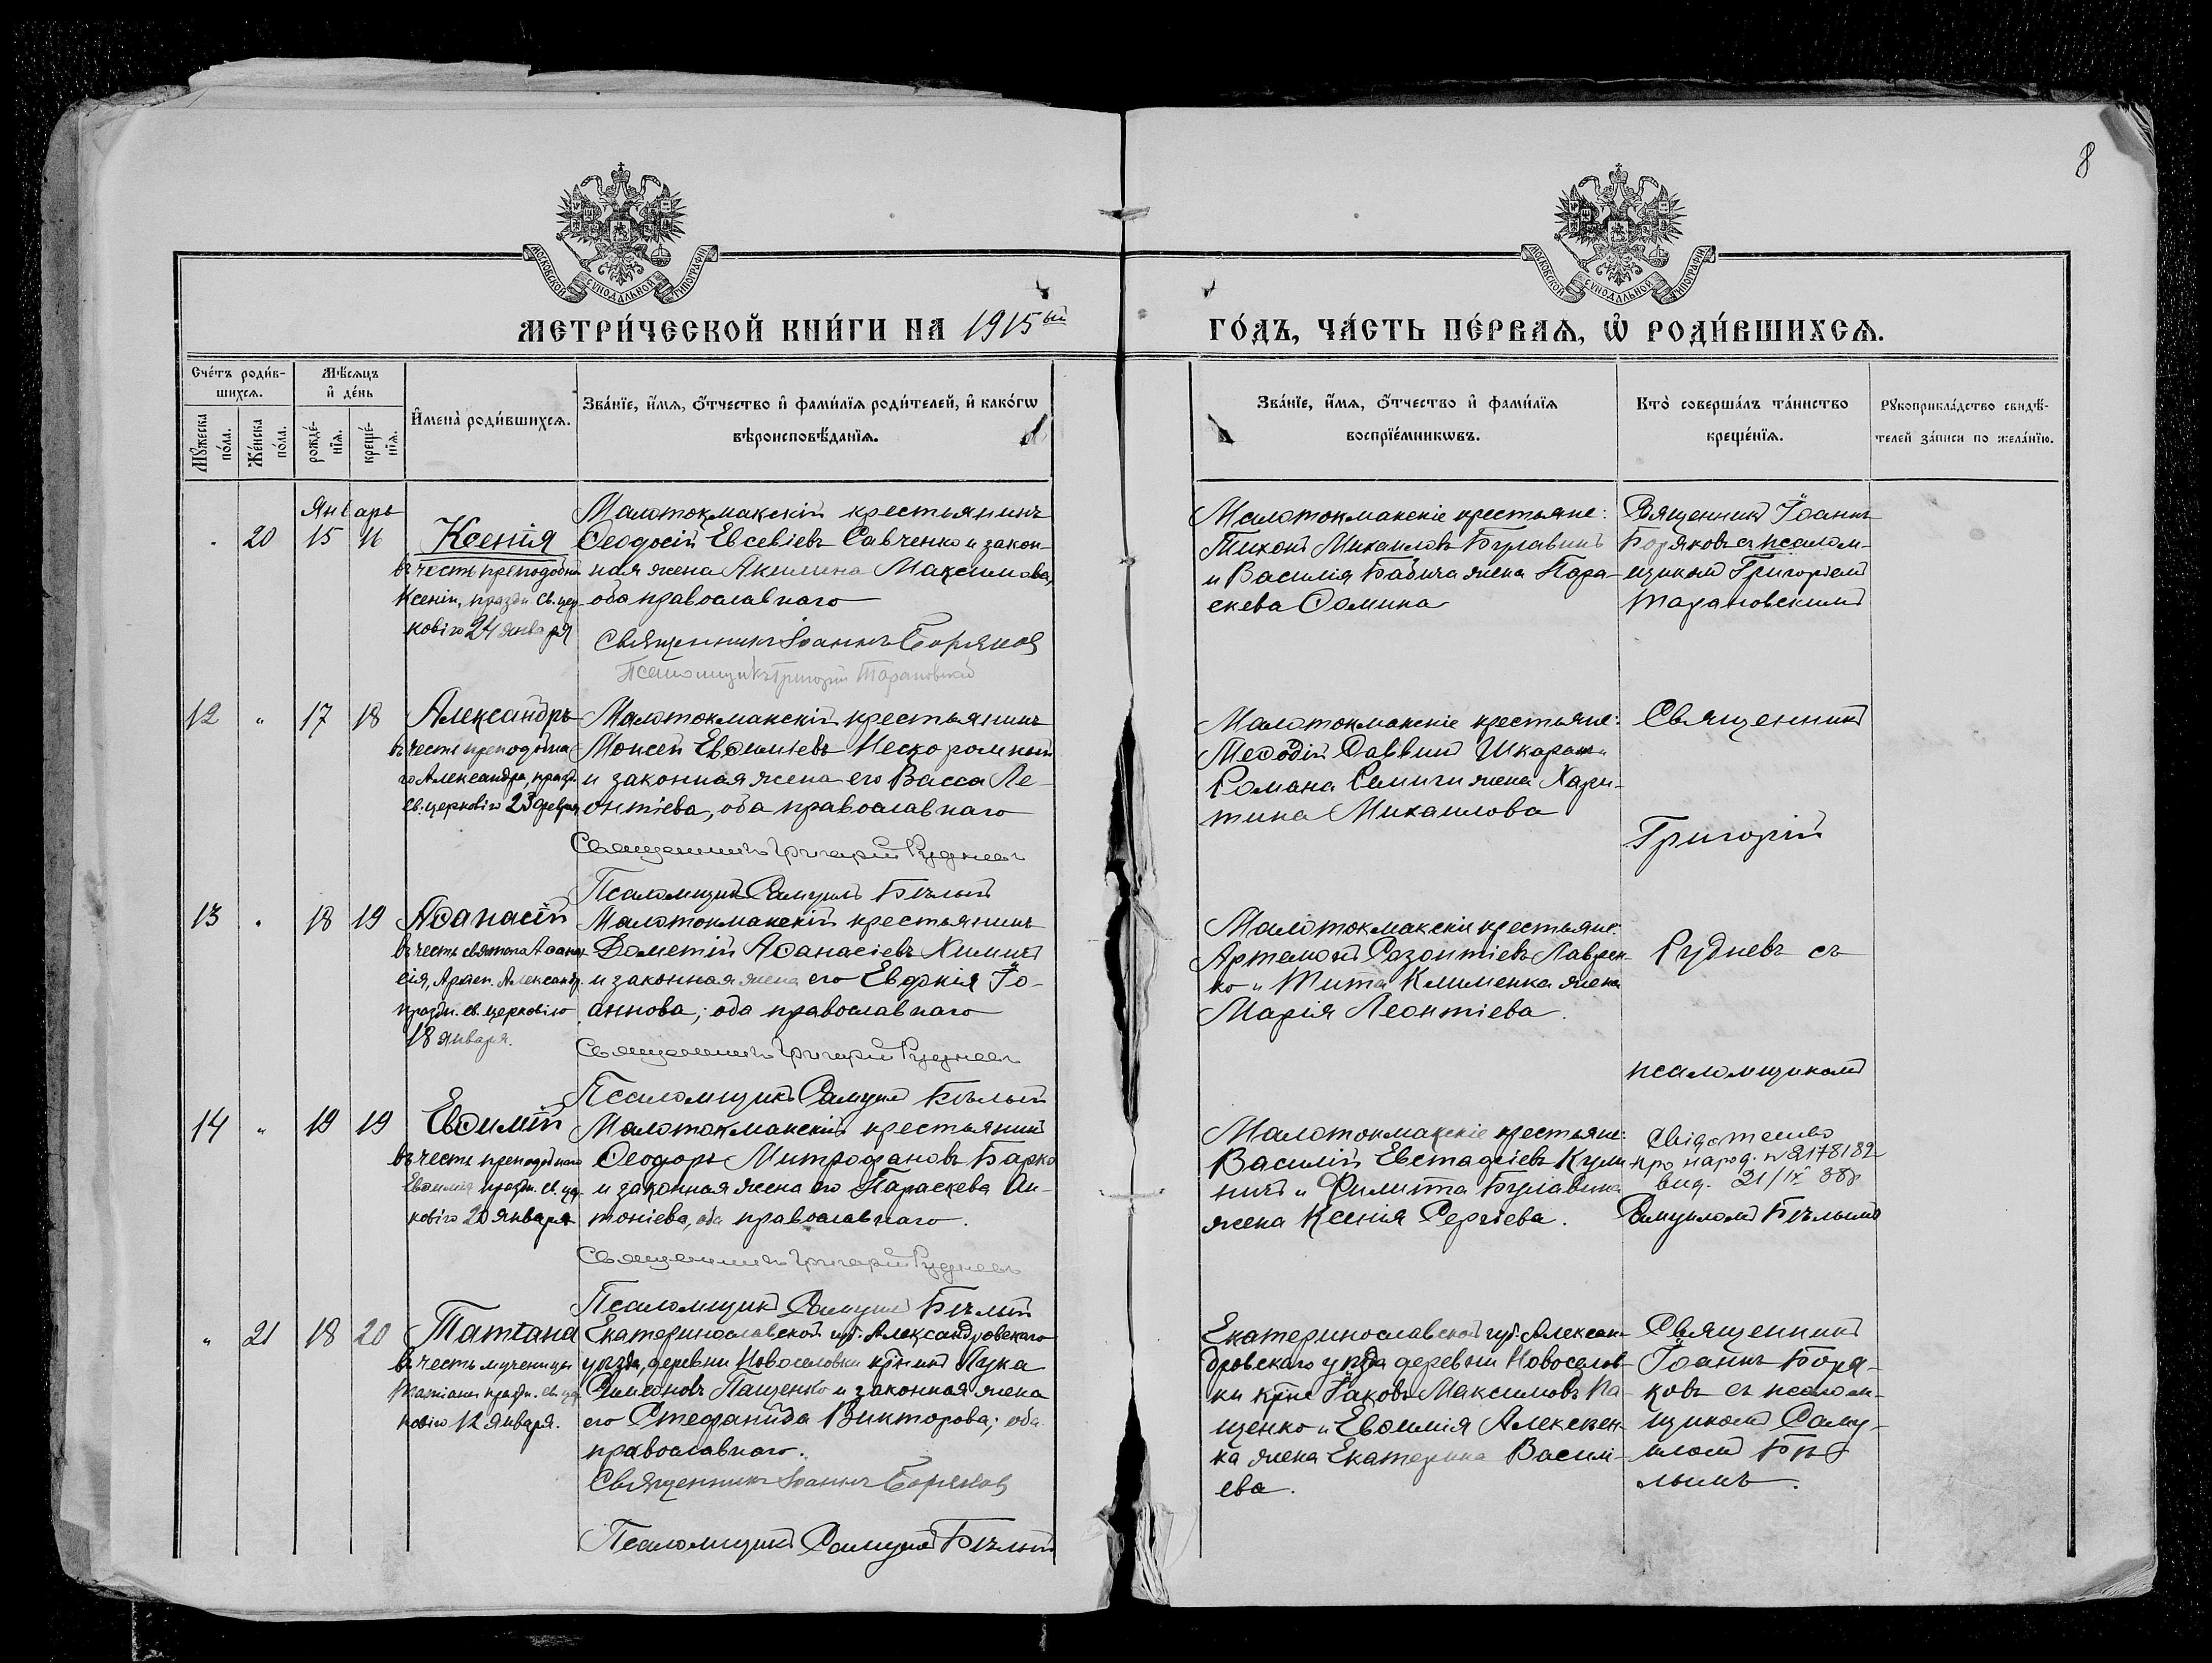 8
МОСКОВСКОЙ СѴНОДАЛЬНОЙ ТИПОГРАФІИ
МОСКОВСКОЙ СѴНОДАЛЬНОЙ ТИПОГРАФІИ
МЕТРИ́ЧЕСКОЙ КНИ́ГИ НА 1915ый
ГО́ДЪ, ЧА́СТЬ ПЕ́РВАѦ, Ѡ҆ РОДИ́ВШИХСѦ.
Сче́тъ роди́в-
шихсѧ.
Мꙋ́жеска по́ла.
Же́нска по́ла.
Мѣ́сѧцъ
и҆ де́нь
рожде́-нїѧ.
креще́-нїѧ.
И҆мена̀ роди́вшихсѧ.
Зва́нїе, и҆́мѧ, ѻ҆́тчество и҆ фами́лїѧ роди́телей, и҆ како́гѡ
вѣроисповѣ́данїѧ.
Зва́нїе, и҆́мѧ, ѻ҆́тчество и҆ фами́лїѧ
воспрїе́мникѡвъ.
Кто̀ соверша́лъ та́инство
креще́нїѧ.
Рꙋкоприкла́дство свидѣ́-
телей за́писи по жела́нїю.
Январь
20 15 16 Ксенія
въ честь преподобн
Ксеніи, праздн. Св. цер-
ковію 24 января
Малотокмакскій крестьянинъ
Ѳеодосій Евсевіевъ Савченко и закон-
ная жена Акилина Максимова,
оба православнаго
Священникъ Іоаннъ Боряковъ
Псаломщикъ Григорій Тарановскій
Малотокмакскіе крестьяне:
Тихонъ Михаиловъ Булавинъ
и Василія Бабича жена Пара-
скева Ѳомина
Священникъ Іоаннъ
Боряковъ съ псалом-
щикомъ Григоріемъ
Тарановскимъ
12 " 17 18 Александръ
въ честь преподобна
го Александра, празд.
св. церковію 23 февраля
Малотокмакскій крестьянинъ
Моисей Евѳиміевъ Нескоромный
и законная жена его Васса Ле-
онтіева, оба православнаго
Священникъ Григорій Рудневъ
Псаломщикъ Самуилъ Бѣлый
Малотокмакскіе крестьяне:
Меѳодій Саввинъ и
Романа жена Хари-
тина Михаилова
Священникъ
Григорій
13 " 18 19 Аѳанасій
въ честь святого Аѳана
сія, Архіеп. Александр.
праздн. св. церковію
18 января.
Малотокмакскій крестьянинъ
Дометій Аѳанасіевъ Химичъ
и законная жена его Евдокія Іо-
аннова; оба православнаго
Священникъ Григорій Рудневъ
Псаломщикъ Самуилъ Бѣлый
Малотокмакскіе крестьяне:
Артемонъ Лаврен-
ко и Тита Клименка жена
Марія Леонтіева.
Рудневъ съ
псаломщикомъ
14 " 19 19 Евѳимій
въ честь преподобнаго
Евѳимія праздн. св. цер-
ковію 20 января
Малотокмакскій крестьянинъ
Ѳеодоръ Митрофановъ Барко
и законная жена его Параскева Ан-
тоніева, оба православнаго.
Священникъ Григорій Рудневъ
Псаломщикъ Самуилъ Бѣлый
Малотокмакскіе крестьяне:
Василій Евстафіевъ Кули
ничъ и Филиппа Булавина
жена Ксенія Сергіева.
Свідотство
про народ. № 2178182
вид. 21/IV 38р
Самуиломъ Бѣлымъ
" 21 18 20 Татіана
въ честь мученицы
Татіаны праздн. св. цер-
ковію 12 января.
Екатеринославской губ. Александровскаго
уѣзда, деревни Новоселовки кр-нинъ Лука
Симоновъ Пащенко и законная жена
его Стефанида Викторова; оба
православнаго.
Священникъ Іоаннъ Боряковъ
Псаломщикъ Самуилъ Бѣлый
Екатеринославской губ. Алексан-
дровскаго уѣзда деревни Новоселов-
ки кр-не Іаковъ Максимовъ Па-
щенко и Евѳимія Алексѣен-
ка жена Екатерина Васил-
ева.
Священникъ
Іоаннъ Боря-
ковъ съ псалом-
щикомъ Саму-
иломъ Бѣ-
лымъ.